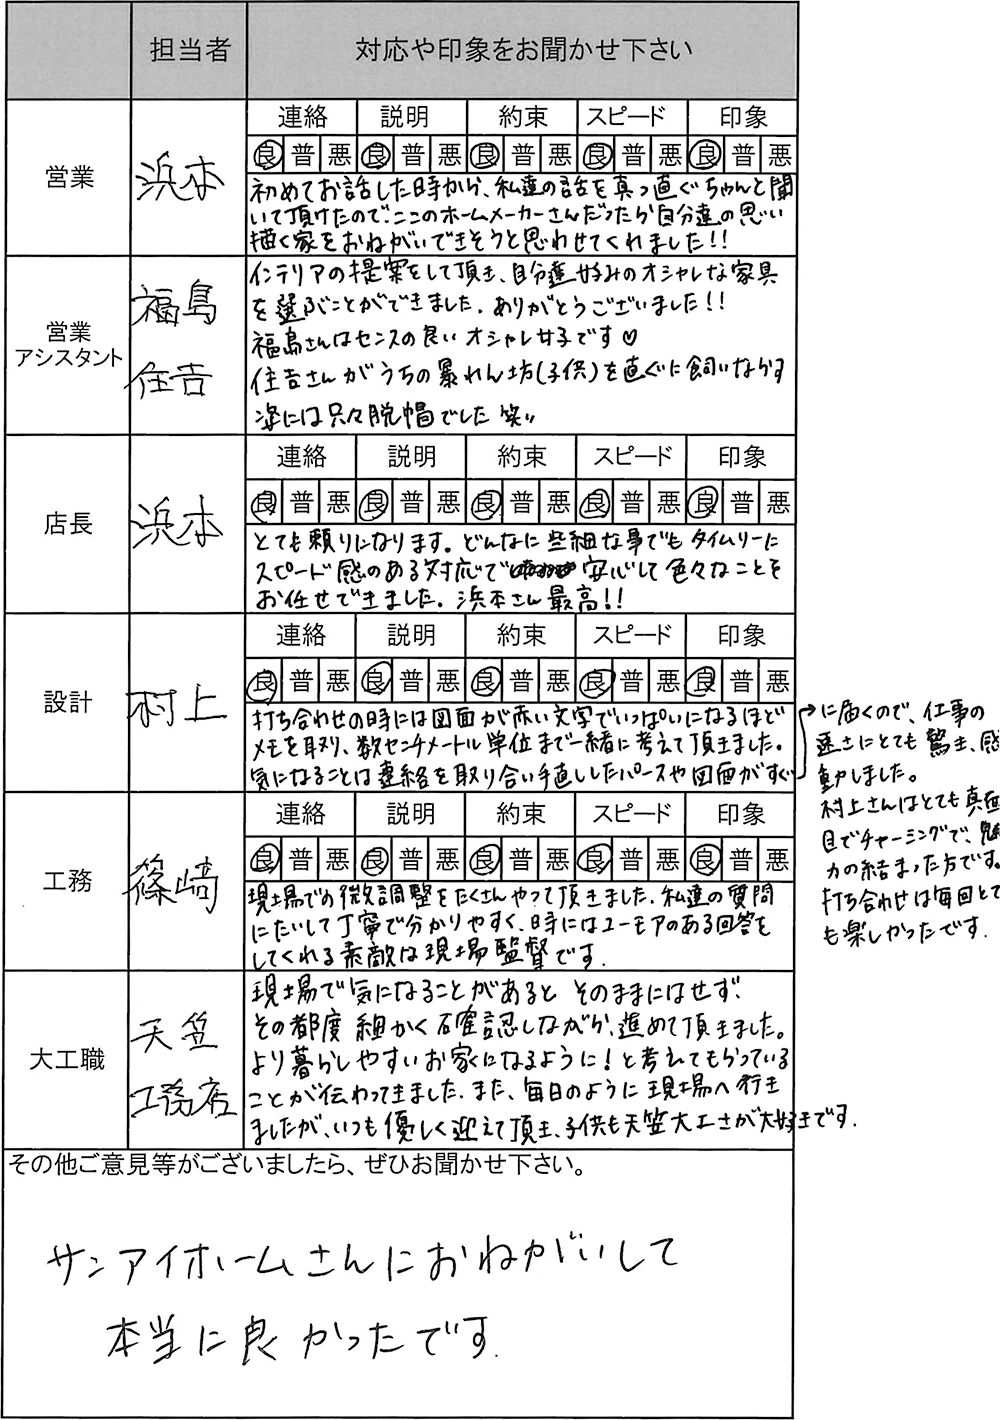 担当者 対応や印象をお聞かせ下さい
営業 浜本
連絡 説明 約束 スピード 印象
良 普 悪 良 普 悪 良 普 悪 良 普 悪 良 普 悪
初めてお話した時から、私達の話を真っ直ぐちゃんと聞
いて頂けたので、ここのホームメーカーさんだったら自分達の思い
描く家をおねがいできそうと思わせてくれました!!
営業
アシスタント
福島
住吉
インテリアの提案をして頂き、自分達好みのオシャレな家具
を選ぶことができました。ありがとうございました!!
福島さんはセンスの良いオシャレ女子です♡
住吉さんがうちの暴れん坊(子供)を直ぐに飼いならす
姿には只々脱帽でした 笑い
店長 浜本
連絡 説明 約束 スピード 印象
良 普 悪 良 普 悪 良 普 悪 良 普 悪 良 普 悪
とても頼りになります。どんなに些細な事でもタイムリーに
スピード感のある対応で 安心して色々なことを
お任せできました。浜本さん最高!!
設計 村上
連絡 説明 約束 スピード 印象
良 普 悪 良 普 悪 良 普 悪 良 普 悪 良 普 悪
打ち合わせの時には図面が赤い文字でいっぱいになるほど
メモを取り、数センチメートル単位まで一緒に考えて頂きました。
気になることは連絡を取り合い手直ししたパースや図面がすぐ
→に届くので、仕事の
速さにとても驚き、感
動しました。
村上さんはとても真面
目でチャーミングで、魅
力の結まった方です。
打ち合わせは毎回とて
も楽しかったです。
工務 篠崎
連絡 説明 約束 スピード 印象
良 普 悪 良 普 悪 良 普 悪 良 普 悪 良 普 悪
現場での微調整をたくさんやって頂きました。私達の質問
にたいして丁寧で分かりやすく、時にはユーモアのある回答を
してくれる素敵な現場監督です。
大工職
天笠
工務店
現場で気になることがあると そのままにはせず、
その都度 細かく確認しながら、進めて頂きました。
より暮らしやすいお家になるように!と考えてもらっている
ことが伝わってきました。また、毎日のように現場へ行き
ましたが、いつも優しく迎えて頂き、子供も天笠大工さが大好きです。
その他ご意見等がございましたら、ぜひお聞かせ下さい。
サンアイホームさんにおねがいして
本当に良かったです。